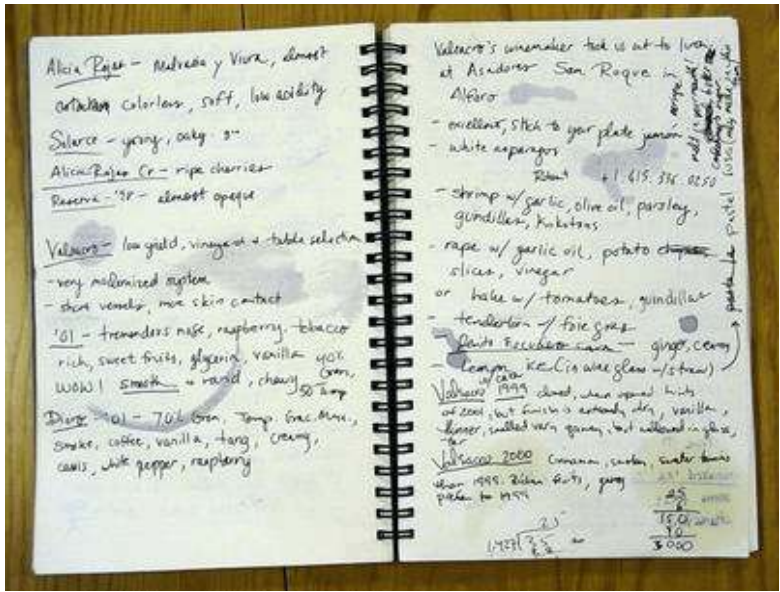 Alicia Rojas - Malvasia y Viura, almost
colorless, soft, low acidity
Solarce - young, oaky
Alicia Rojas Cr - ripe cherries
Reserva - '98 - almost opaque
Valsacro - low yield, vineyard & table selection
- very modernized system
- short vessels, more skin contact
'01 - tremendous nose, raspberry, tobacco
rich, sweet fruits, glycerin, vanilla 40%
WOW! smooth & round, chewy Gran,
50 Temp
Dioro '01 - 70% Gran, Temp. Grac. Maz.,
smoke, coffee, vanilla, tang, creamy,
cassis, white pepper, raspberry
Valsacro's winemaker took us out to lunch
at Asadores San Roque in
Alfaro
- excellent, stick to your plate jamon
- white asparagus
+1.615.336.0250
- shrimp w/ garlic, olive oil, parsley,
gundillas, kokotxas
- rape w/ garlic oil, potato
slices, vinegar
or hake w/ tomatoes, gundillas
- tenderloin w/ foie gras
- ginger,
- lemon ice (in wine glass w/ straw)
Valsacro 1999 closed, when opened hints
of 2001, but finish is extremely dry, vanilla,
thinner, smelled very gamey, but mellowed in glass,
tar
Valsacro 2000 cinnamon, smoky, sweeter tannins
than 1999. Richer fruits, gamey
prefer to 1999
25
6
150